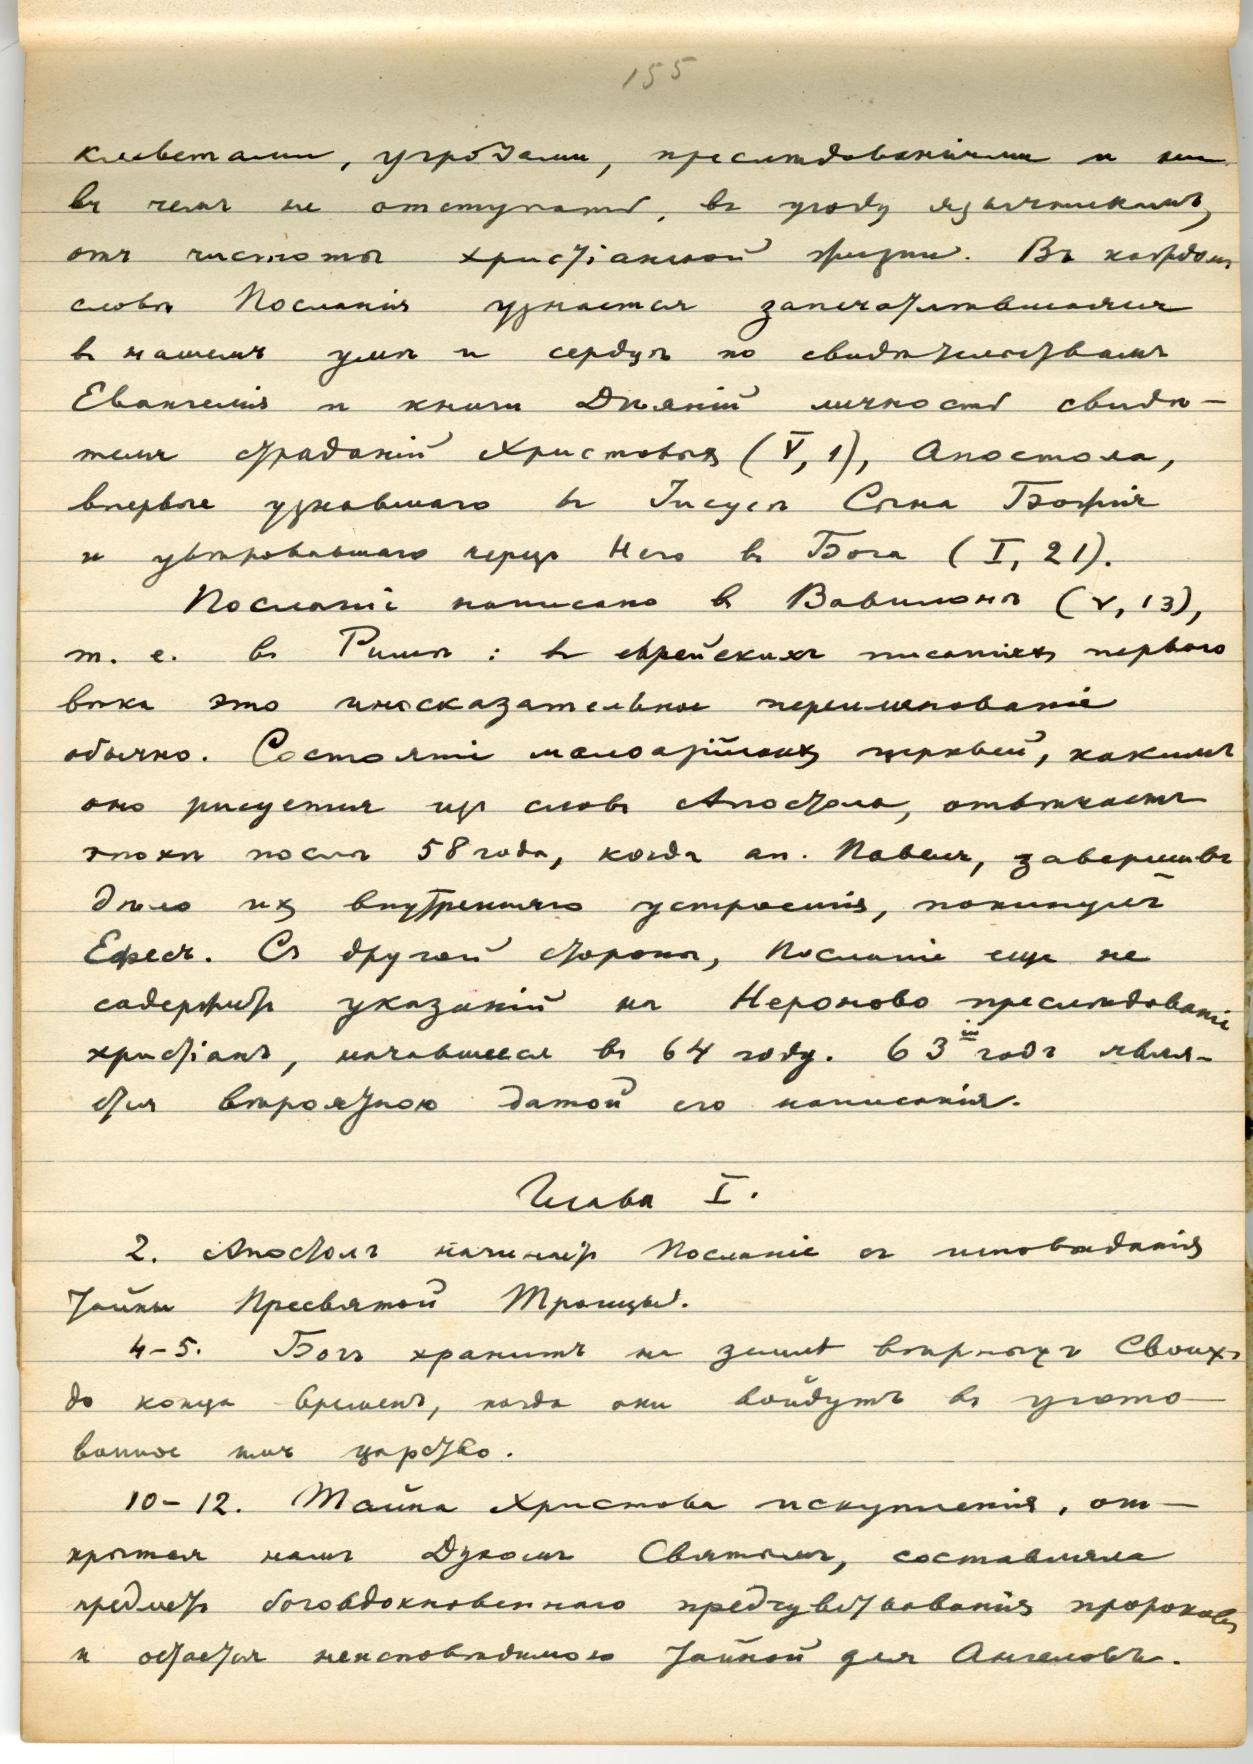 155
клеветами, угрозами, преслѣдованіями и ни
въ чемъ не отступать, въ угоду язычникамъ,
отъ чистоты христіанской жизни. Въ каждомъ
словѣ Посланія узнается запечатлѣвшаяся
въ нашемъ умѣ и сердцѣ по свидѣтельствамъ
Евангелія и книги Дѣяній личность свидѣ-
теля страданій Христовыхъ (V, 1), Апостола,
впервые узнавшаго въ Іисусѣ Сына Божія
и увѣровавшаго черезъ Него въ Бога (I, 21).
Посланіе написано въ Вавилонѣ (V, 13),
т. е. въ Римѣ: въ еврейскихъ писаніяхъ перваго
вѣка это иносказательное переименованіе
обычно. Состояніе малоазійскихъ церквей, какимъ
оно рисуется изъ словъ Апостола, отвѣчаетъ
эпохѣ послѣ 58 года, когда ап. Павелъ, завершивъ
дѣло ихъ внутренняго устроенія, покинулъ
Ефесъ. Съ другой стороны, Посланіе еще не
содержитъ указаній на Нероново преслѣдованіе
христіанъ, начавшееся въ 64 году. 63ій годъ явля-
ется вѣроятною датой его написанія.
Глава I.
2. Апостолъ начинаетъ Посланіе съ исповѣданія
Тайны Пресвятой Троицы.
4-5. Богъ хранитъ на землѣ вѣрныхъ Своихъ
до конца временъ, когда они войдутъ въ угото-
ванное имъ царство.
10-12. Тайна Христова искупленія, от-
крытая намъ Духомъ Святымъ, составляла
предметъ боговдохновеннаго предчувствованія пророковъ
и остается неисповѣдимою тайной для Ангеловъ.